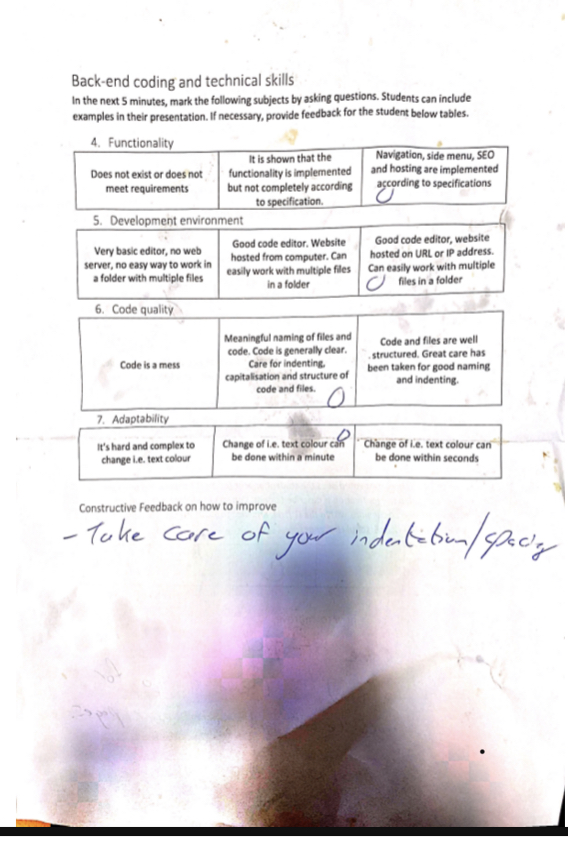 Back-end coding and technical skills
In the next 5 minutes, mark the following subjects by asking questions. Students can include
examples in their presentation. If necessary, provide feedback for the student below tables.
4. Functionality
Does not exist or does not
meet requirements
It is shown that the
functionality is implemented
but not completely according
to specification.
Navigation, side menu, SEO
and hosting are implemented
according to specifications
5. Development environment
Very basic editor, no web
server, no easy way to work in
a folder with multiple files
Good code editor. Website
hosted from computer. Can
easily work with multiple files
in a folder
Good code editor, website
hosted on URL or IP address.
Can easily work with multiple
files in a folder
6. Code quality
Code is a mess
Meaningful naming of files and
code. Code is generally clear.
Care for indenting,
capitalisation and structure of
code and files.
Code and files are well
structured. Great care has
been taken for good naming
and indenting.
7. Adaptability
It's hard and complex to
change i.e. text colour
Change of i.e. text colour can
be done within a minute
Change of i.e. text colour can
be done within seconds
Constructive Feedback on how to improve
- Take care of your indentation/spacing